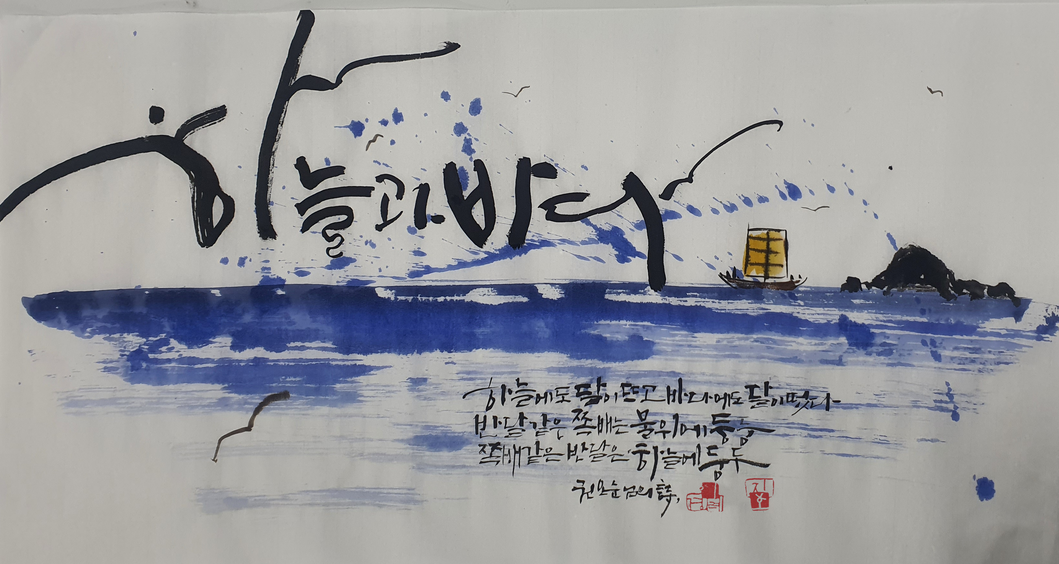 하늘과바다
하늘에도 달이 뜨고 바다에도 달이 떴다
반달 같은 쪽배는 물 위에 둥둥
쪽배 같은 반달은 하늘에 둥둥
권오순님의 詩,